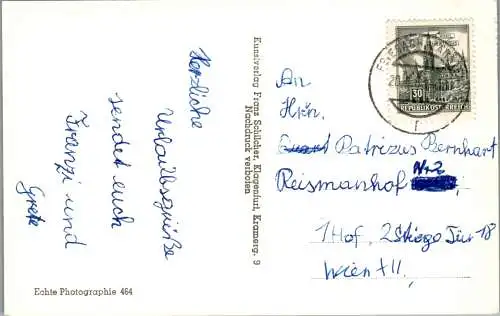 Herzliche
Urlaubsgrüße
sendet euch
Franzi und
Grete
Echte Photographie 464
Kunstverlag Franz Schilcher, Klagenfurt, Kramerg. 9
Nachdruck verboten
30
REPUBLIK ÖSTERREICH
An
Hrn.
Patrizus Bernhart
Reismanhof Nr 2
1 Hof, 2 Stiege Tür 18
Wien XII,